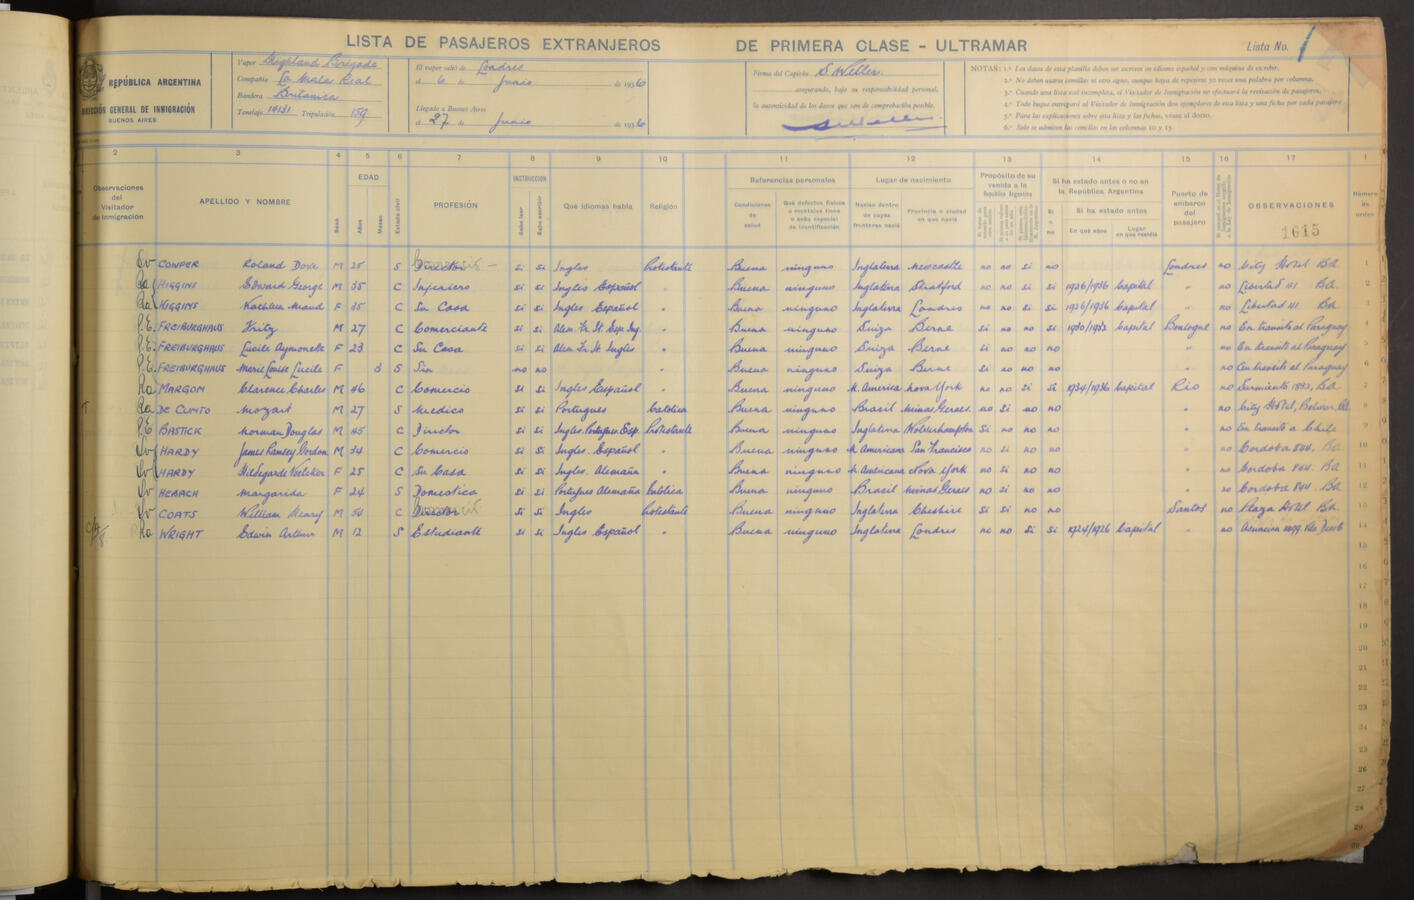 LISTA DE PASAJEROS EXTRANJEROS DE PRIMERA CLASE - ULTRAMAR Lista No. 1
REPÚBLICA ARGENTINA
DIRECCIÓN GENERAL DE INMIGRACIÓN
BUENOS AIRES
Vapor Highland Brigade
Compañía La Mala Real
Bandera Britanica
Tonelaje 14131 Tripulación 159
El vapor salió de Londres
el 6 de Junio de 1936
Llegado a Buenos Aires
el 27 de Junio de 1936
Firma del Capitán
asegurando, bajo su responsabilidad personal,
la autenticidad de los datos que son de comprobación posible.
NOTAS: 1.ª Los datos de esta planilla deben ser escritos en idioma español y con máquina de escribir.
2.ª No deben usarse comillas ni otro signo, aunque haya de repetirse 30 veces una palabra por columna.
3.ª Cuando una lista esté incompleta, el Visitador de Inmigración no efectuará la revisación de pasajeros.
4.ª Todo buque entregará al Visitador de Inmigración dos ejemplares de esta lista y una ficha por cada pasajero
5.ª Para las explicaciones sobre esta lista y las fichas, véase al dorso.
6.ª Solo se admiten las comillas en las columnas 10 y 15.
2 3 4 5 6 7 8 9 10 11 12 13 14 15 16 17 1
Observaciones del Visitador de Inmigración
APELLIDO Y NOMBRE
Sexo
EDAD
Años
Meses
Estado civil
PROFESIÓN
INSTRUCCION
Sabe leer
Sabe escribir
Qué idiomas habla
Religión
Referencias personales
Condiciones de salud
Qué defectos físicos o mentales tiene o seña especial de identificación
Lugar de nacimiento
Nación dentro de cuyas fronteras nació
Provincia o ciudad en que nació
Propósito de su venida a la República Argentina
Si ha estado antes o no en la República Argentina
Si o no
Si ha estado antes
En qué años
Lugar en que residió
Puerto de embarco del pasajero
OBSERVACIONES
1615
Número de orden
COWPER Roland Dove M 25 S Director si si Ingles Protestante Buena ninguno Inglatera Newcastle no no si no Londres no City Hotel BA 1
HIGGINS Edward George M 35 C Ingeniero si si Ingles Español " Buena ninguno Inglatera Stratford no no si si 1926/1936 Capital " no Libertad 141 BA 2
HIGGINS Kathleen Maud F 35 C Su Casa si si Ingles Español " Buena ninguno Inglatera Londres no no si si 1926/1936 Capital " no Libertad 141 BA 3
P.E. FREIBURGHAUS Fritz M 27 C Comerciante si si Alem. Fr. It. Esp. Ing. " Buena ninguno Suiza Berne si no no si Capital Boulogne no En transito al Paraguay 4
P.E. FREIBURGHAUS Lucile Aymonete F 23 C Su Casa si si Alem. Fr. It. Ingles " Buena ninguno Suiza Berne si no no no " no En transito al Paraguay 5
P.E. FREIBURGHAUS Marie Louise Lucile F S Sin no no " Buena ninguno Suiza Berne si no no no " no En transito al Paraguay 6
MARGON Clarence Charles M 46 C Comercio si si Ingles Español " Buena ninguno N. America Nova York no no si si 1934/1936 Capital Rio no Sarmiento 1892, BA 7
DE CUNTO Mozart M 27 S Medico si si Portugues Catolica Buena ninguno Brasil Minas Geraes no si no no " no City Hotel, Bolivar, BA 8
P.E. BASTICK Norman Douglas M 45 C Director si si Ingles. Portugues. Esp. Protestante Buena ninguno Inglatera Wolverhampton si no no no " no En transito a Chile 9
HARDY James Ramsey Gordon M 34 C Comercio si si Ingles. Español " Buena ninguno N. Americana San Francisco no si no no " no Cordoba 844. BA 10
HARDY Hildegarde F 25 C Su Casa si si Ingles. Alemaña " Buena ninguno N. Americana Nova York no si no no " no Cordoba 844. BA 11
HEBACH Margarida F 24 S Domestica si si Portugues Alemaña Catolica Buena ninguno Brasil Minas Geraes no si no no " no Cordoba 844 BA 12
COATS William Henry M 54 C Director si si Ingles Protestante Buena ninguno Inglatera Cheshire si si no no Santos no Plaza Hotel BA. 13
WRIGHT Edwin Arthur M 12 S Estudiante si si Ingles Español " Buena ninguno Inglatera Londres no no si si 1924/1926 Capital " no 14
15
16
17
18
19
20
21
22
23
24
25
26
27
28
29
30